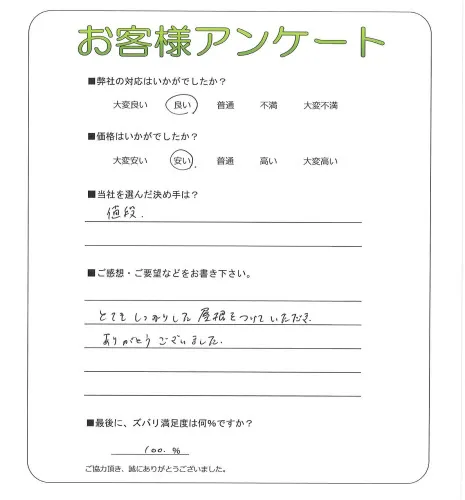 お客様アンケート
■弊社の対応はいかがでしたか？
大変良い 良い 普通 不満 大変不満
■価格はいかがでしたか？
大変安い 安い 普通 高い 大変高い
■当社を選んだ決め手は？
値段.
■ご感想・ご要望などをお書き下さい。
とてもしっかりした屋根をつけていただき.
ありがとうございました.
■最後に、ズバリ満足度は何％ですか？
100.%
ご協力頂き、誠にありがとうございました。